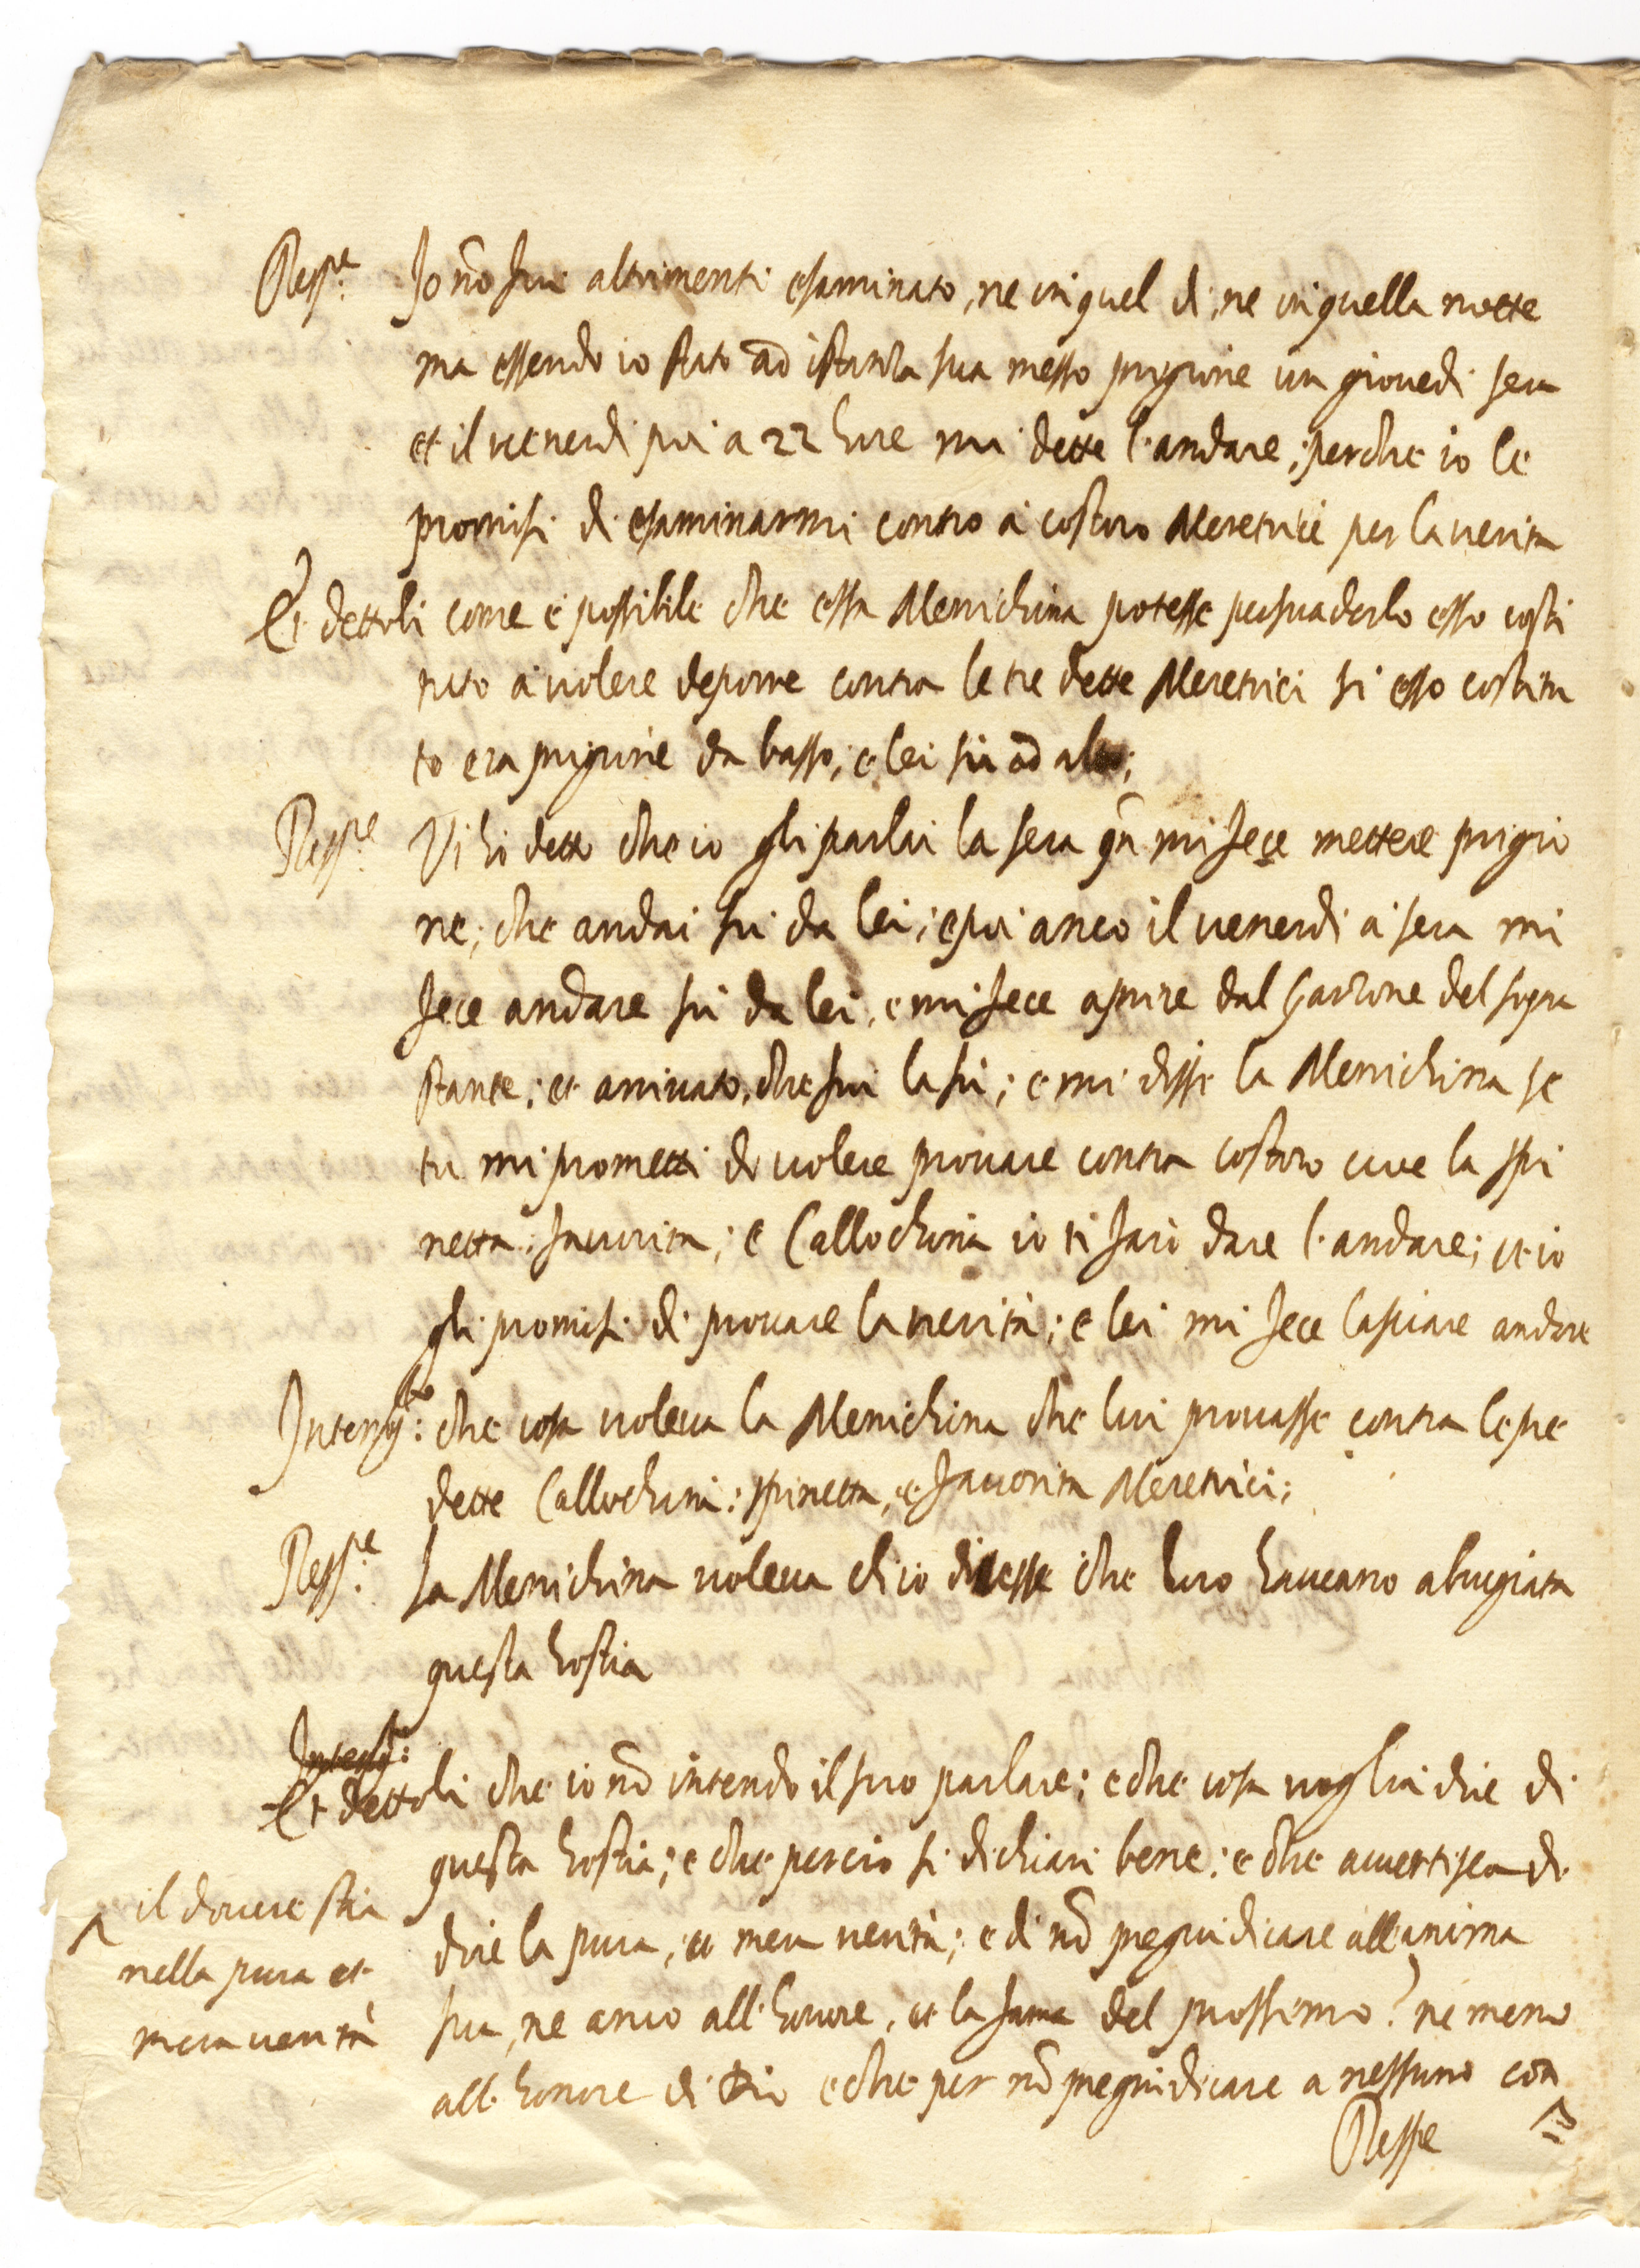 Resp.e Io nõ fui altrimenti esaminato, ne in quel di, ne in quella notte
ma essendo io stato ad istanza sua messo prigione un giovedi sera
et il venerdi poi a 22 hore mi dette l'andare, perche io le
promisi di esaminarmi contro à costoro Meretrici per la verita
Et dettoli come è possibile che essa Menichina potesse persuaderlo esso costi
tuto à volere deporre contra le tre dette Meretrici si esso costitu
to era prigione da basso, e lei sù ad alto;
Resp.e Vi hò detto che io gli parlai la sera qñ mi fece mettere prigio
ne, che andai sù da lei; e poi anco il venerdi à sera mi
fece andare sù da lei, e mi fece aprire dal Garzone del sopra
stante; et arrivato, che fui la sù; e mi disse la Menichina se
tu mi prometti di volere provare contra costoro cioe la Spi
netta, favorita; e Callochina io ti farò dare l'andare; et io
gli promisi di provare la verità; e lei mi fece lasciare andare
Interrg.to: che cosa voleva la Menichina che lui provasse contra le pre
dette Callochina: Spinetta, e favorita Meretrici;
Resp.e La Menichina voleva ch'io dicesse che loro haveano abrugiata
questa hostia
Interrg.to:
Et dettoli che io nõ intendo il suo parlare; e che cosa voglia dire di
questa hostia; e che perciò si dichiari bene; e che avvertisca di
dire la pura, et mera verità; e di nõ pregiudicare all'anima
sua, ne anco all'honore, et la fama del prossimo? ne meno
all'honore di Dio e che per nõ pregiudicare a nessuno con
Respe
il dovere stia
nella pura et
mera verità